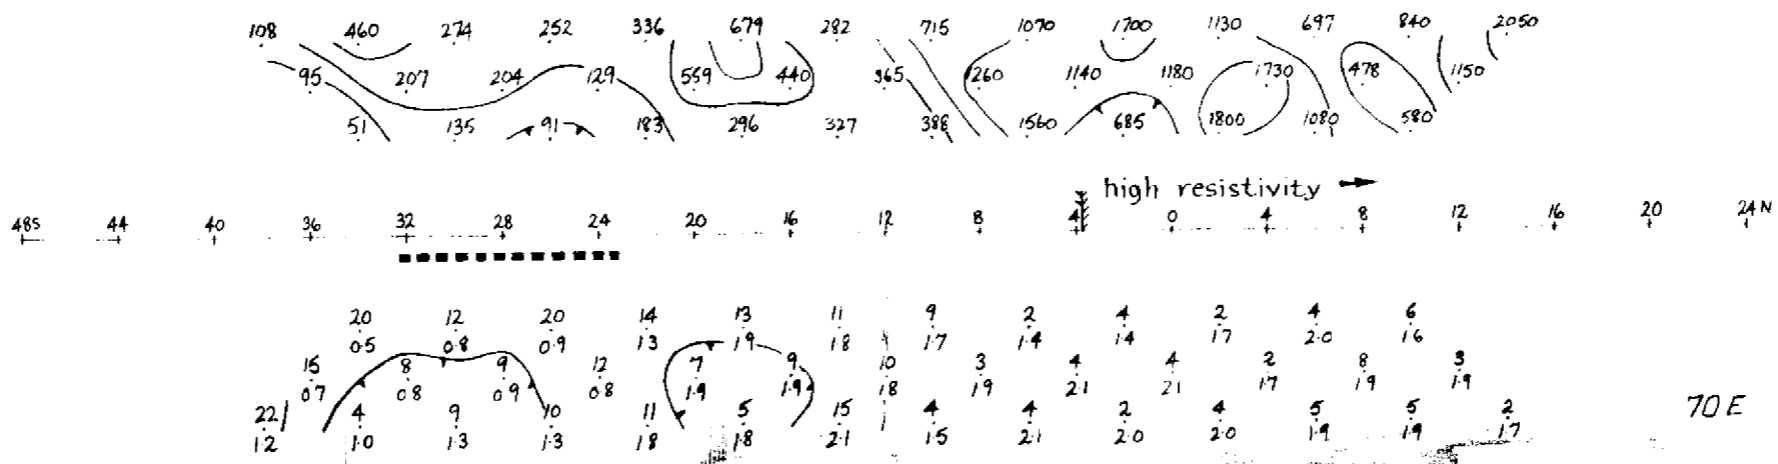 108 460 274 252 336 679 282 715 1070 1700 1130 697 840 2050
95 207 204 129 559 440 365 260 1140 1180 1730 478 1150
51 135 91 183 296 327 388 1560 685 1800 1080 580
high resistivity
48S 44 40 36 32 28 24 20 16 12 8 4 0 4 8 12 16 20 24 N
20 12 20 14 13 11 9 2 4 2 4 6
0.5 0.8 0.9 1.3 1.9 1.8 1.7 1.4 1.4 1.7 2.0 1.6
15 8 9 12 7 9 10 3 4 4 2 8 3
0.7 0.8 0.9 0.8 1.9 1.9 1.8 1.9 2.1 2.1 1.7 1.9 1.9
22 4 9 10 11 5 15 4 4 2 4 5 5 2
1.2 1.0 1.3 1.3 1.8 1.8 2.1 1.5 2.1 2.0 2.0 1.9 1.9 1.7
70 E